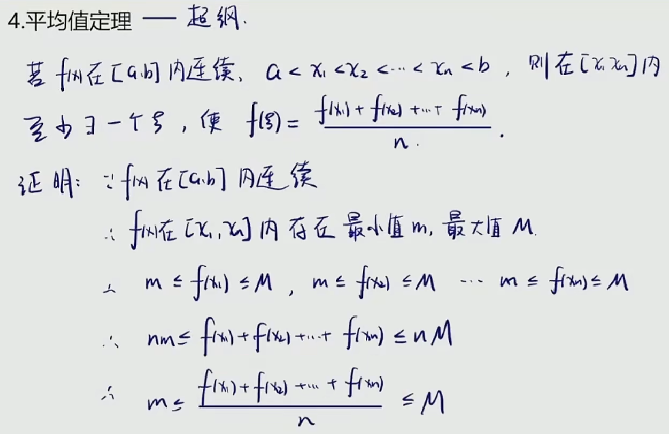 4.平均值定理 — 超纲.
若 f(x)在[a,b]内连续, a < x₁ < x₂ < ⋯ < xₙ < b , 则在[x₁,xₙ]内
至少∃一个ξ , 使 f(ξ) = (f(x₁) + f(x₂) + ⋯ + f(xₙ)) / n .
证明: ∵ f(x)在[a,b]内连续
∴ f(x)在[x₁,xₙ]内存在最小值m, 最大值M.
∴ m ≤ f(x₁) ≤ M , m ≤ f(x₂) ≤ M ⋯ m ≤ f(xₙ) ≤ M
∴ nm ≤ f(x₁) + f(x₂) + ⋯ + f(xₙ) ≤ nM
∴ m ≤ (f(x₁) + f(x₂) + ⋯ + f(xₙ)) / n ≤ M